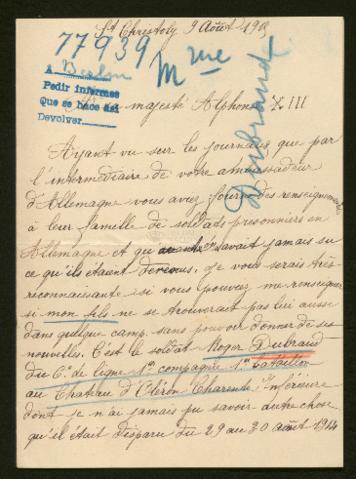 St Christoly 9 Août 19
77939
Mme
Dubrand
A Berlin
Pedir informes
Que se hace así
Devolver
majesté Alphonse XIII
Ayant vu sur les journaux que par
l'intermédiaire de votre ambassadeur
d'Allemagne vous aviez fourni des renseignements
à leur famille de soldats prisonniers en
Allemagne et qu' avait jamais su
ce qu'ils étaient devenus, Je vous serais très
reconnaissante si vous pouvez me renseigner
si mon fils ne se trouverait pas lui aussi
dans quelque camp sans pouvoir donner de ses
nouvelles. C'est le soldat Roger Dubrand
du 6e de ligne 1re compagnie 1er bataillon
au Chateau d'Oléron Charente inférieure
dont je n'ai jamais pu savoir autre chose
qu'il était disparu du 29 au 30 août 1914